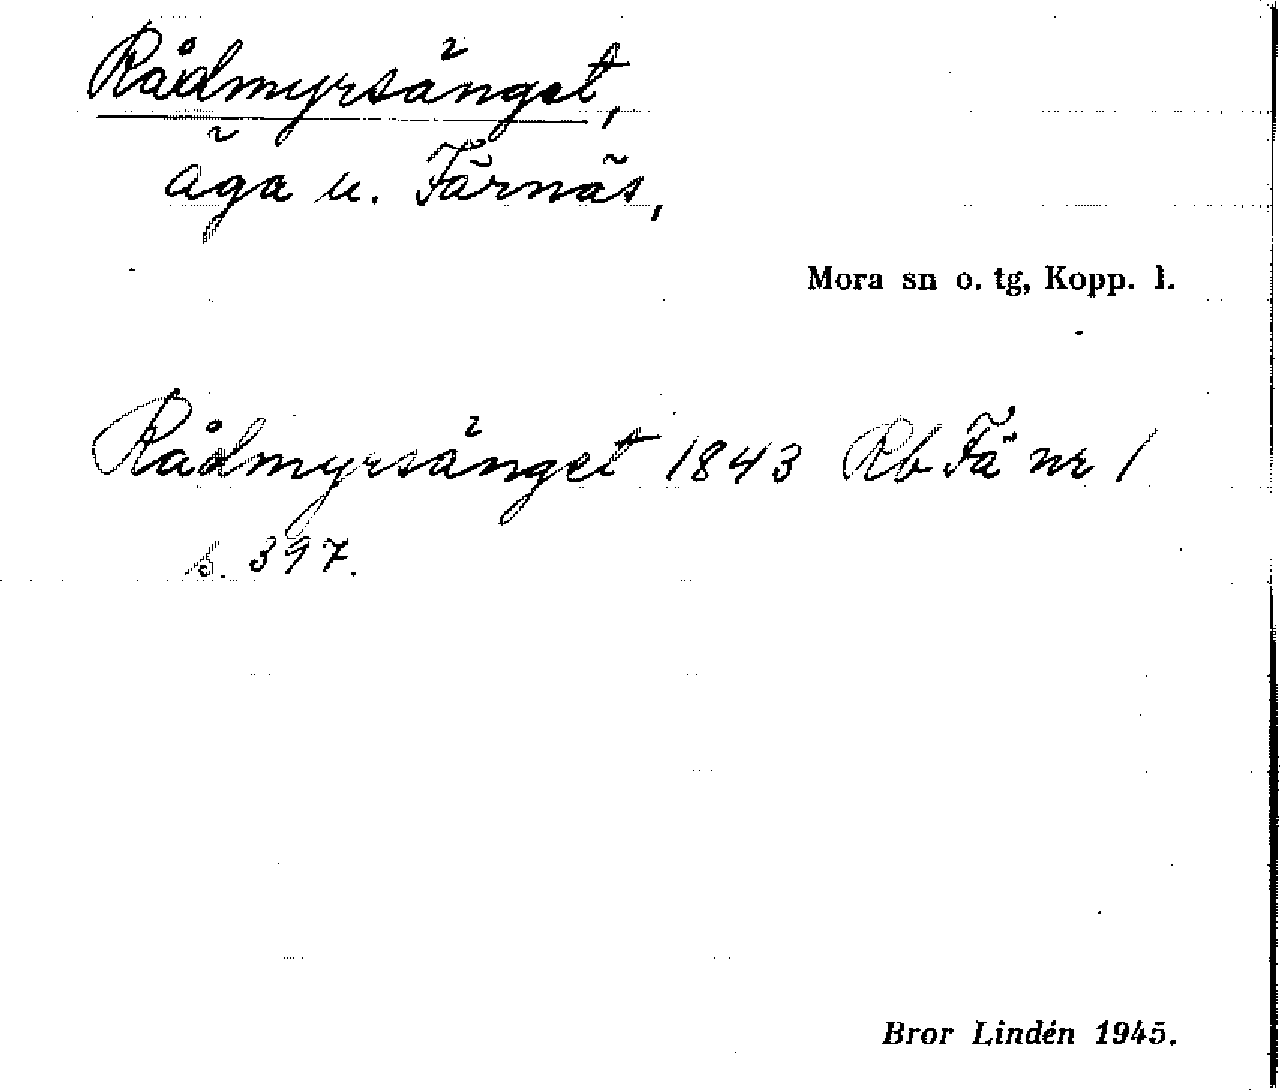 Rådmyrsänget,
äga u. Färnäs,
Mora sn o. tg, Kopp. l.
Rådmyrsänget 1843 Rb Fä nr 1
s. 397.
Bror Lindén 1945.